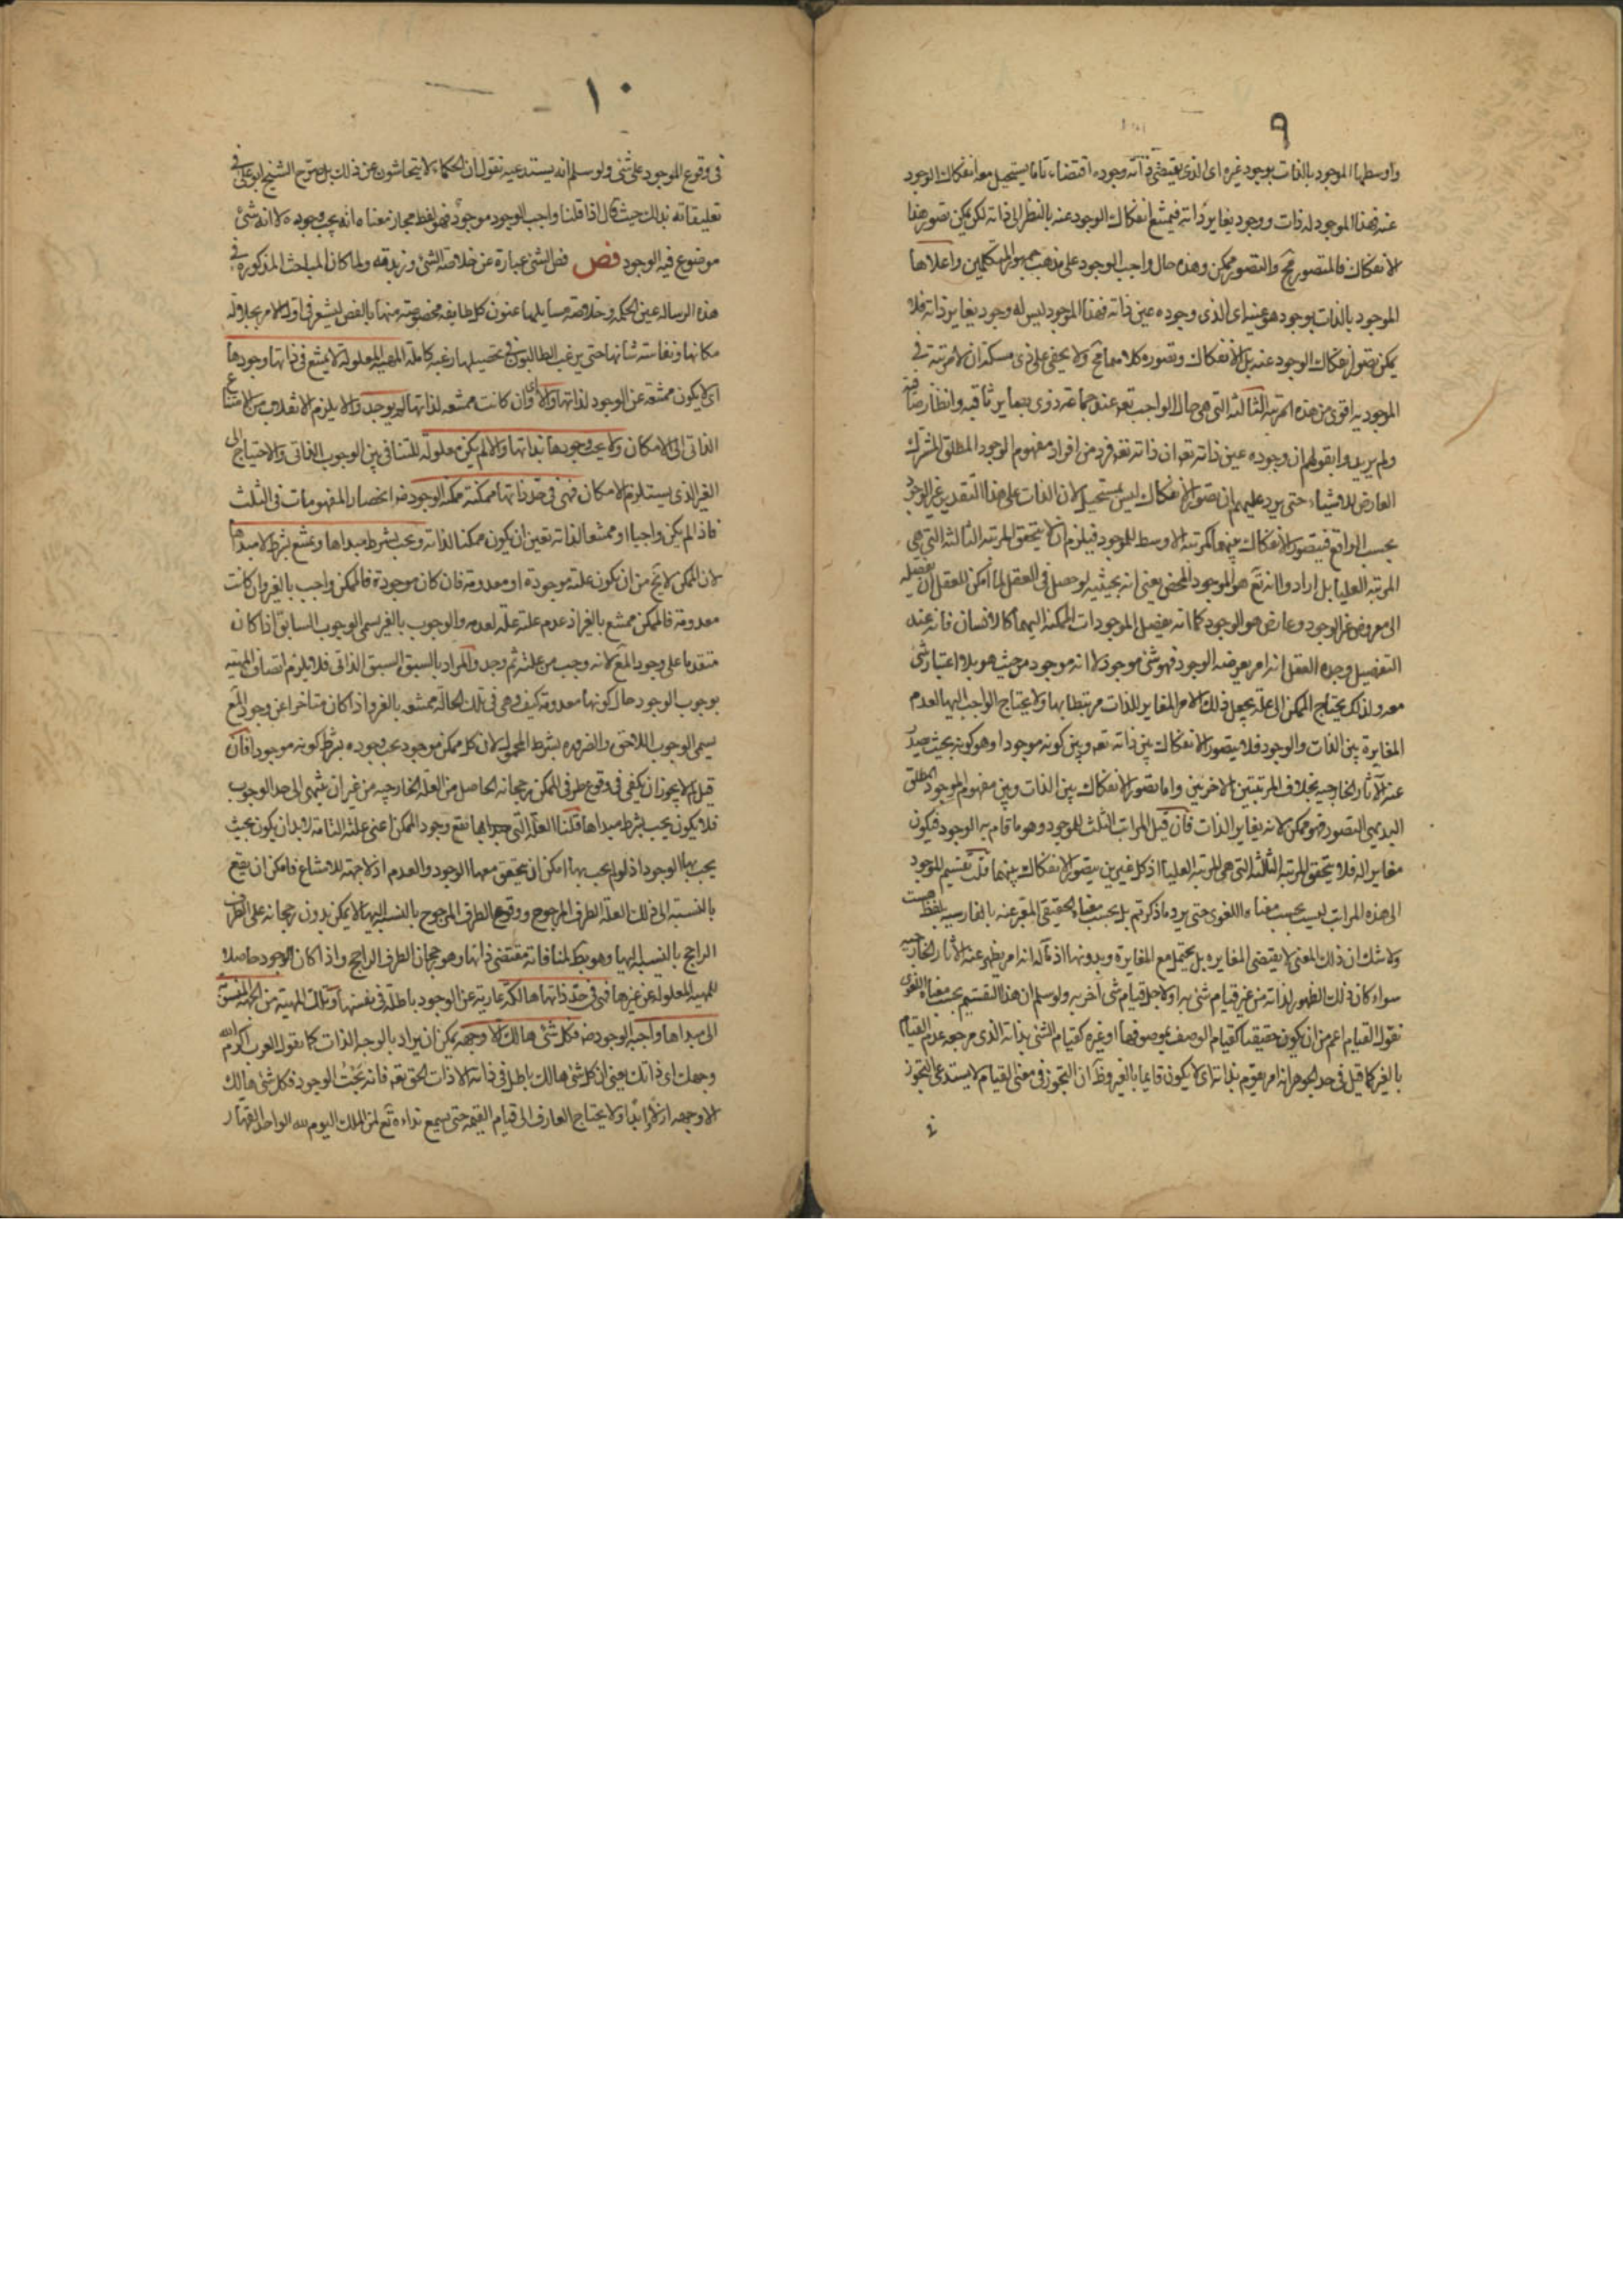 ٩
واوسطها الموجود بالذات بوجود غيره اى الذى يقتضى ذاته وجوده اقتضاء تاما يستحيل معه انفكاك الوجود
عنه فهذا الموجود له ذات ووجود يغاير ذاته فيمتنع انفكاك الوجود عنه بالنظر الى ذاته لكن يمكن تصور هذا
الانفكاك فالمتصور مح والتصور ممكن وهذه حال واجب الوجود على مذهب جمهور المتكلمين واعلاها
الموجود بالذات بوجود هو عينه اى الذى وجوده عين ذاته فهذا الموجود ليس له وجود يغاير ذاته فلا
يمكن تصور انفكاك الوجود عنه بل الانفكاك وتصوره كلاهما مح ولا يخفى على ذى مسكة ان لا مرتبة فى
الموجودية اقوى من هذه المرتبة الثالثة التى هى حال الواجب تعه عند جماعة ذوى بصاير ثاقبه وانظار صائبه
ولم يريدوا بقولهم ان وجوده عين ذاته تعه ان ذاته تعه فرد من افراد مفهوم الوجود المطلق المشترك
العارض للاشياء حتى يرد عليهم ان تصور الانفكاك ليس بمستحيل لان الذات على هذا التقدير غير الوجود
بحسب الواقع فيتصور الانفكاك بينهما كمرتبة الاوسط للموجود فيلزم ان لا يتحقق المرتبة الثالثة التى هى
المرتبة العليا بل ارادوا انه تع هو الموجود المحض يعنى انه بحيثيه لو حصل فى العقل لما امكن للعقل ان يفصله
الى معروض غير الوجود وعارض هو الوجود كما انه يفصل الموجودات الممكنة اليهما كالانسان فانه عند
التفصيل وجده العقل انه امر يعرضه الوجود فهو شئ موجود لا انه موجود من حيث هو بلا اعتبار شئ
معه ولذلك يحتاج الممكن الى علة يجعل ذلك الامر المغاير للذات مرتبطا بها ولا يحتاج الواجب اليها لعدم
المغايرة بين الذات والوجود فلا يتصور الانفكاك بين ذاته تعه وبين كونه موجودا وهو كونه بحيث يصدر
عنه الآثار الخارجيه بخلاف المرتبتين الاخريين واما تصور الانفكاك بين الذات وبين مفهوم الموجود المطلق
البديهى التصور فهو ممكن لانه يغاير الذات فان قيل المراتب الثلث للموجود وهو ما قام به الوجود فيكون
مغايرا له فلا يتحقق المرتبة الثالثة التى هى المرتبة العليا اذ كل غيرين يتصور الانفكاك بينهما قلت تقسيم الموجود
الى هذه المراتب ليست بحسب معناه اللغوى حتى يرد ما ذكرتم بل بحسب معناه الحقيقى المعبر عنه بالفارسيه بلفظ هست
ولا شك ان ذلك المعنى لا يقتضى المغايره بل يحتمل مع المغايرة وبدونها اذ مآله انه امر يظهر عنه الآثار الخارجيه
سواء كان ذلك الظهور لذاته من غير قيام شئ به او لاجل قيام شئ آخر به ولو سلم ان هذا التقسيم بحسب معناه اللغوى
نقول القيام اعم من ان يكون حقيقيا كقيام الوصف بموصوفها او غيره كقيام الشئ بذاته الذى مرجعه عدم القيام
بالغير كما قيل فى حد الجوهر انه امر يقوم بذاته اى لا يكون قايما بالغير وظ ان التجوز فى معنى القيام لا يستدعى التجوز
١٠
فى وقوع الموجود على شئ ولو سلم انه يستدعيه نقول ان الحكماء لا يتحاشون عن ذلك بل صرح الشيخ ابو على فى
تعليقاته بذلك حيث قال اذا قلنا واجب الوجود موجود فهو لفظ مجاز معناه انه يجب وجوده لا انه شئ
موضوع فيه الوجود فص فص الشئ عبارة عن خلاصة الشئ وزبدته ولما كان المباحث المذكوره فى
هذه الرساله عين الحكمه وخلاصة مسايلها عنون كل طايفه مخصوصة منها بالفص ليشعر فى اول الامر بجلالة
مكانها ونفاسته شانها حتى يرغب الطالبون فى تحصيلها رغبة كاملة المهية المعلولة لا يمتنع فى ذاتها وجودها
اى لا يكون ممتنعة عن الوجود لذاتها والا اى وان كانت ممتنعه لذاتها لم يوجد والا يلزم الانقلاب من الامتناع
الذاتى الى الامكان ولا يجب وجودها بذاتها والا لم يكن معلولة للتنافى بين الوجوب الذاتى والاحتياج الى
الغير الذى يستلزم الامكان فهى فى حد ذاتها ممكنة ممكنة الوجود ضرو انحصار المفهومات فى الثلث
فاذا لم يكن واجبا او ممتنعا لذاته تعين ان يكون ممكنا لذاته وتجب بشرط مبداها وتمتنع بشرط لا مبداها
لان الممكن لا يخ من ان يكون علته موجودة او معدومة فان كان موجودة فالممكن واجب بالغير وان كانت
معدومة فالممكن ممتنع بالغير اذ عدم علته علة لعدمه والوجوب بالغير يسمى الوجوب السابق اذا كان
متقدما على وجود المع لانه وجب من علته ثم وجد والمراد بالسبق السبق الذاتى فلا يلزم اتصاف المهيه
بوجوب الوجود حال كونها معدومة كيف وهى فى تلك الحالة ممتنعه بالغير واذا كان متاخرا عن وجود المع
يسمى الوجوب اللاحق والضروره بشرط المحمول لان كل ممكن موجود يجب وجوده بشرط كونه موجودا فان
قيل لم لا يجوز ان يكفى فى وقوع طرفى الممكن رجحانه الحاصل من العلة الخارجيه من غير ان ينتهى الى حد الوجوب
فلا يكون يجب بشرط مبداها قلنا العلة التى بها يقع وجود الممكن اعنى علته التامة لابد ان يكون بحيث
يجب بها الوجود اذ لو لم يجب بها امكن ان يتحقق معها الوجود والعدم اذ لا جهة للامتناع فامكن ان يقع
بالنسبة الى ذلك العلة الطرف المرجوح ووقوع الطرف المرجوح بالنسبة اليها لا يمكن بدون رجحانه على الطرف
الراجح بالنسبة اليها وهو بط لمنافاته مقتضى ذاتها وهو رجحان الطرف الراجح واذا كان الوجود حاصلا
للمهية المعلوله عن غيرها فهى فى حد ذاتها هالكة عارية عن الوجود باطلة فى نفسها وتلك المهية من الجهة المنسوبة
الى مبداها واجبة الوجود ضه فكل شئ هالك الا وجهه يمكن ان يراد بالوجه الذات كما يقول العرب اكرم الله
وجهك اى ذاتك يعنى ان كل شئ هالك باطل فى ذاته الا ذات الحق تعه فانه بحت الوجود فكل شئ هالك
الا وجهه ازلا وابدا ولا يحتاج العارف الى قيام القيمه حتى يسمع نداءه تع لمن الملك اليوم لله الواحد القهار